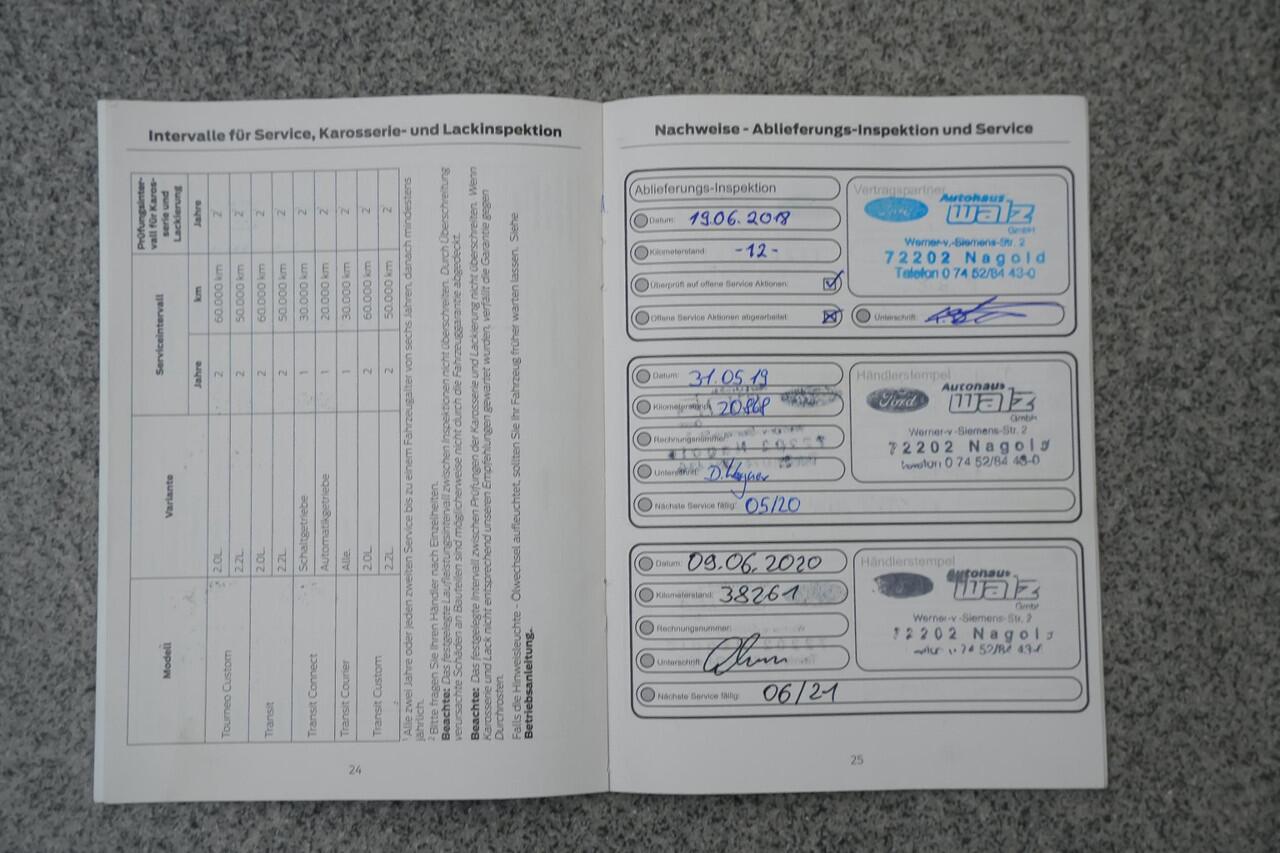 Intervalle für Service, Karosserie- und Lackinspektion
Modell Variante Serviceintervall Prüfungsinter-
vall für Karos-
serie und
Lackierung
Jahre km Jahre
Tourneo Custom 2.0L 2 60.000 km 2
2.2L 2 50.000 km 2
Transit 2.0L 2 60.000 km 2
2.2L 2 50.000 km 2
Transit Connect Schaltgetriebe 1 30.000 km 2
Automatikgetriebe 1 20.000 km 2
Transit Courier Alle. 1 30.000 km 2
Transit Custom 2.0L 2 60.000 km 2
2.2L 2 50.000 km 2
1 Alle zwei Jahre oder jeden zweiten Service bis zu einem Fahrzeugalter von sechs Jahren, danach mindestens
jährlich.
2 Bitte fragen Sie Ihren Händler nach Einzelheiten.
Beachte: Das festgelegte Laufleistungsintervall zwischen Inspektionen nicht überschreiten. Durch Überschreitung
verursachte Schäden an Bauteilen sind möglicherweise nicht durch die Fahrzeuggarantie abgedeckt.
Beachte: Das festgelegte Intervall zwischen Prüfungen der Karosserie und Lackierung nicht überschreiten. Wenn
Karosserie und Lack nicht entsprechend unseren Empfehlungen gewartet wurden, verfällt die Garantie gegen
Durchrosten.
Falls die Hinweisleuchte - Ölwechsel aufleuchtet, sollten Sie Ihr Fahrzeug früher warten lassen. Siehe
Betriebsanleitung.
24
Nachweise - Ablieferungs-Inspektion und Service
Ablieferungs-Inspektion
Datum: 19.06.2018
Kilometerstand: -12-
Überprüft auf offene Service Aktionen:
Offene Service Aktionen abgearbeitet:
Vertragspartner
Ford Autohaus
Walz
GmbH
Werner-v.-Siemens-Str. 2
72202 Nagold
Telefon 0 74 52/84 43-0
Unterschrift:
Datum: 31.05.19
Kilometerstand: 20868
Rechnungsnummer:
Unterschrift: D. Wagner
Nächste Service fällig: 05/20
Händlerstempel
Ford Autohaus
Walz
GmbH
Werner-v.-Siemens-Str. 2
72202 Nagold
0 74 52/84 43-0
Datum: 09.06.2020
Kilometerstand: 38261
Rechnungsnummer:
Unterschrift:
Nächste Service fällig: 06/21
Händlerstempel
Autohaus
Walz
GmbH
Werner-v.-Siemens-Str. 2
72202 Nagold
25